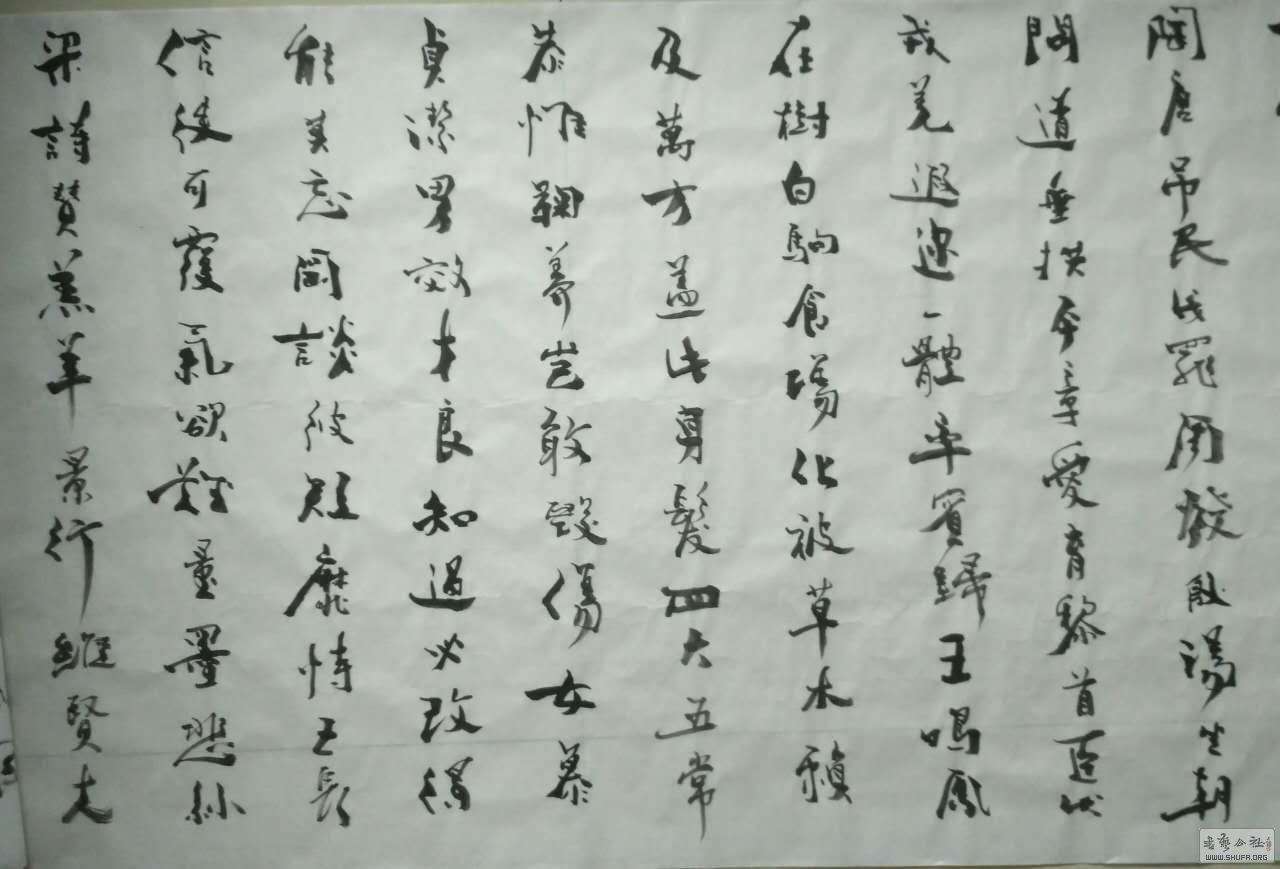 陶唐吊民伐罪周發殷湯坐朝
問道垂拱平章愛育黎首臣伏
戎羌遐邇一體率賓歸王鳴鳳
在樹白駒食場化被草木賴
及萬方蓋此身髮四大五常
恭惟鞠養豈敢毀傷女慕
貞潔男效才良知過必改得
能莫忘罔談彼短靡恃己長
信使可覆器欲難量墨悲絲
染詩贊羔羊景行維賢克
书艺公社
WWW.SHUFA.ORG